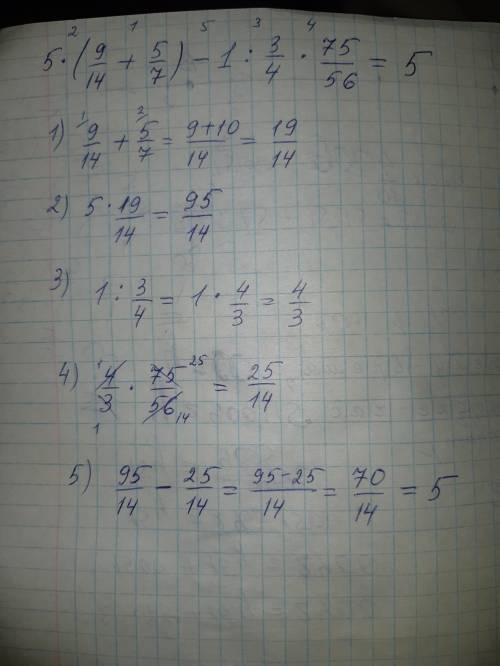 2 1 5 3 4
5 · (9/14 + 5/7) - 1 : 3/4 · 75/56 = 5
1) 9/14 + 5/7 = 9+10/14 = 19/14
2) 5 · 19/14 = 95/14
3) 1 : 3/4 = 1 · 4/3 = 4/3
4) 4/3 · 75/56 = 25/14
5) 95/14 - 25/14 = 95-25/14 = 70/14 = 5